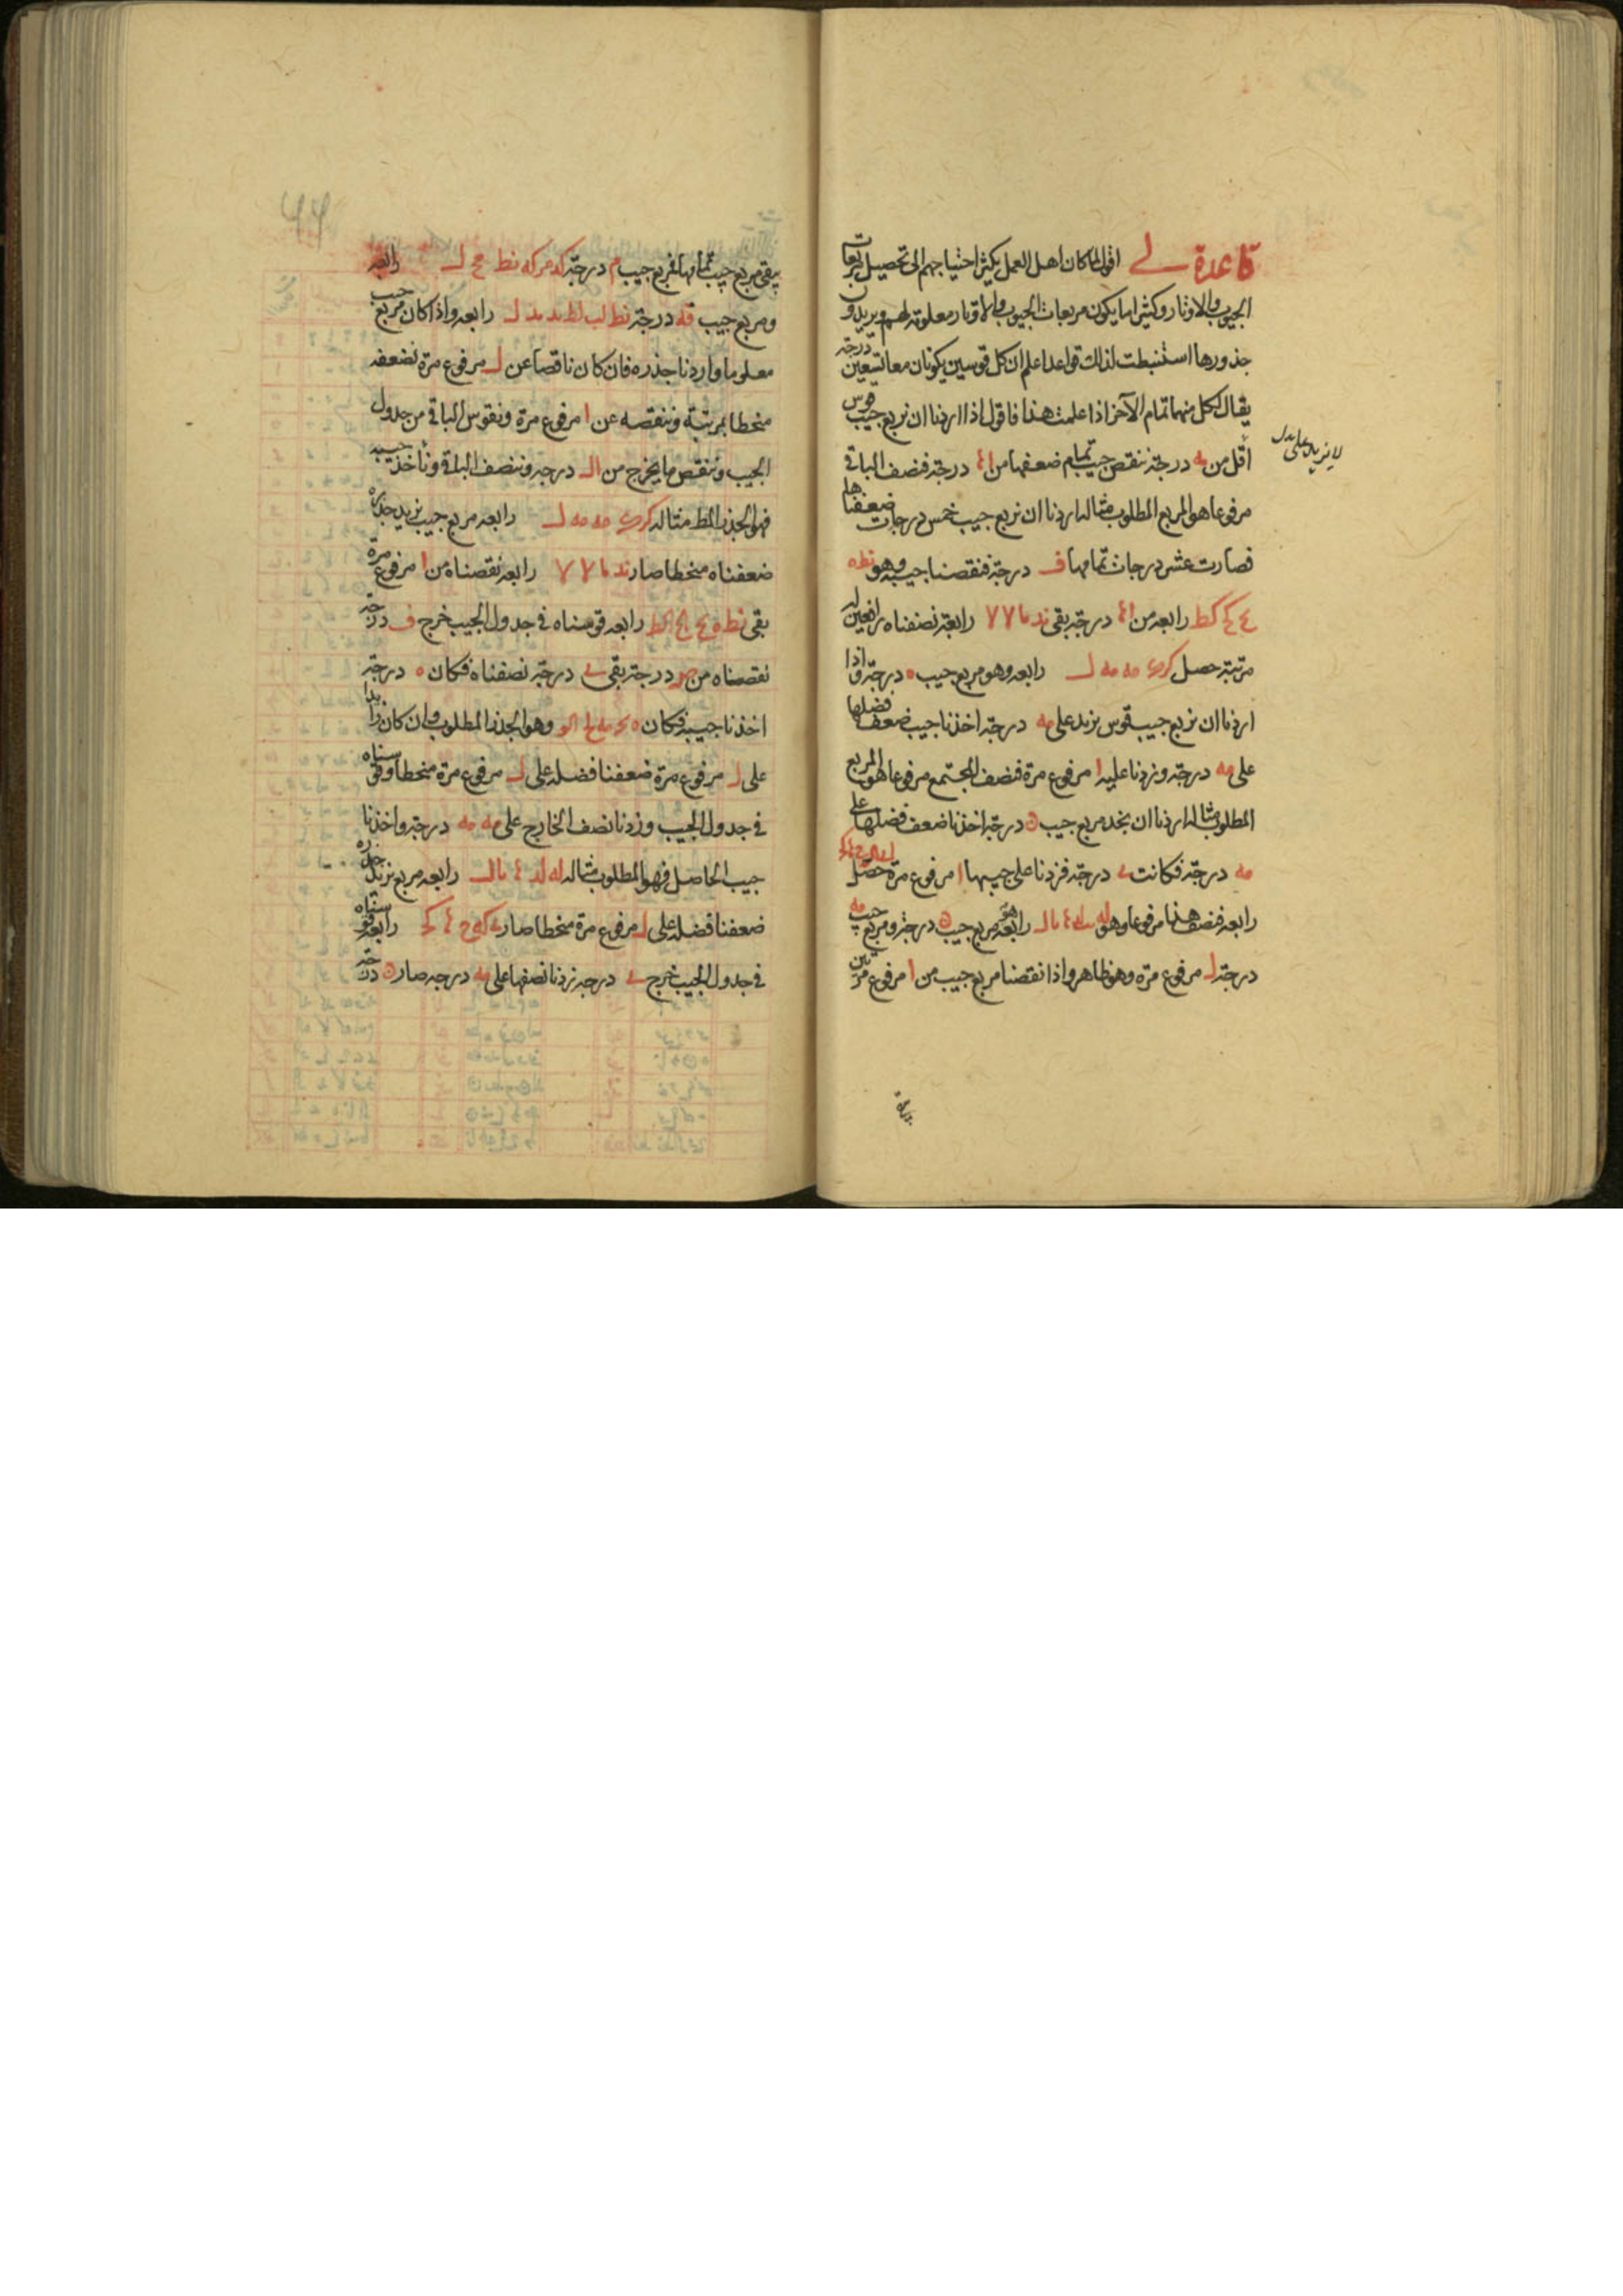 قاعدة لى اقول لما كان اهل العمل يكثر احتياجهم الى تحصيل مربعات
الجيوب والاوتار وكثيرا ما يكون مربعات الجيوب والاوتار معلومة لهم ويريدون
جذورها استنبطت لذلك قواعد اعلم ان كل قوسين يكونان معا تسعين درجة
يقال لكل منهما تمام الآخر اذا علمت هذا فاقول اذا اردنا ان نربع جيب قوس
اقل من مه درجة ننقص جيب تمام ضعفها من درجة فنصف الباقي
لا يزيد على بدل
مرفوعا هو المربع المطلوب مثاله اردنا ان نربع جيب خمس درجات ضعفناها
فصارت عشر درجات تمامها ف درجة فنقصنا جيبه وهو نط ه
كط رابعه من درجة بقى ند رابعة نصفناه رافعين له
مرتبة حصل مه مه ل رابعه وهو مربع جيب ه درجة واذا
اردنا ان نربع جيب قوس يزيد على مه درجة اخذنا جيب ضعف فضلها
على مه درجة وزدنا عليه ا مرفوع مرة فنصف المجتمع مرفوعا هو المربع
المطلوب مثاله اردنا ان نجد مربع جيب ن درجة اخذنا ضعف فضلها على
مه درجة فكانت ى درجة فزدنا على جيبها ا مرفوع مرة حصل
رابعه فنصف هذا مرفوعا وهو له رابعه هو مربع جيب ن درجة ومربع جيب مه
درجة ل مرفوع مرة وهو ظاهر واذا نقصنا مربع جيب من ا مرفوع مرتين
يبقى مربع جيب تمامها فمربع جيب م درجة كد مر كه نط مح ل رابعه
ومربع جيب فه درجة نط لب لط ند ند ل رابعه واذا كان مربع جيب
معلوما واردنا جذره فان كان ناقصا عن ل مرفوع مرة نضعفه
منحطا بمرتبة وننقصه عن ا مرفوع مرة ونقوس الباقي من جدول
الجيب وننقص ما يخرج من درجة وننصف الباقي ونأخذ جيبه
فهو الجذر المط مثاله مه مه ل رابعه مربع جيب نريد جذره
ضعفناه منحطا صار ند رابعه نقصناه من ا مرفوع مرة
بقى نط ه رابعه قوسناه في جدول الجيب خرج ف درجة
نقصناه من ص درجة بقى ى درجة نصفناه فكان ه درجة
اخذنا جيبه فكان ه وهو الجذر المطلوب وان كان زائدا
على ل مرفوع مرة ضعفنا فضله على ل مرفوع مرة منحطا وقوسناه
في جدول الجيب وزدنا نصف الخارج على مه درجة واخذنا
جيب الحاصل فهو المطلوب مثاله له رابعه مربع نريد جذره
ضعفنا فضله على ل مرفوع مرة منحطا صار ى كه رابعه قوسناه
في جدول الجيب خرج ى درجة زدنا نصفها على مه درجة صار ن درجة